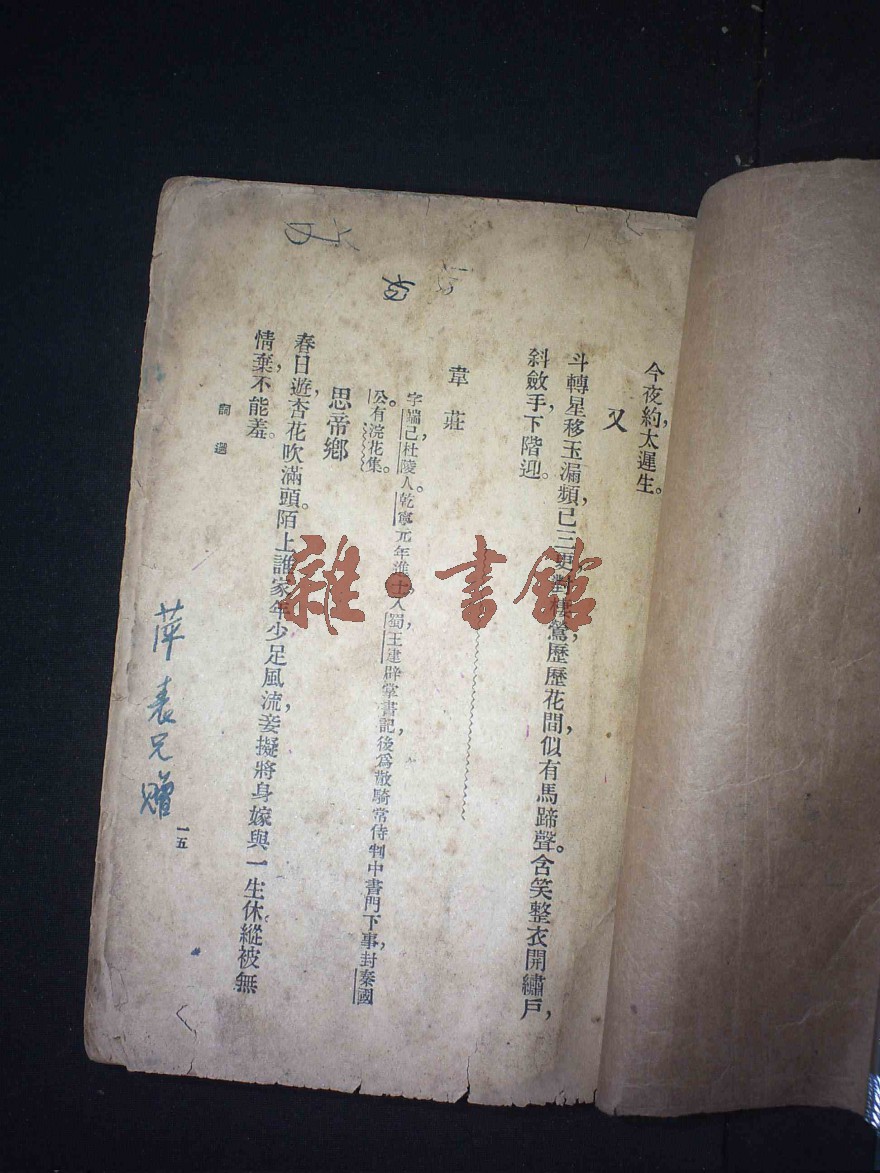 今夜約，太遲生。
又
斗轉星移玉漏頻，已三更，對棲鶯，歷歷花間，似有馬蹄聲。含笑整衣開繡戶，
斜斂手，下階迎。
韋莊
字端己，杜陵人。乾寧元年進士。入蜀，王建辟掌書記，後爲散騎常侍，判中書門下事，封秦國
公。有浣花集。
思帝鄉
春日遊，杏花吹滿頭。陌上誰家年少足風流，妾擬將身嫁與一生休。縱被無
情棄，不能羞。
詞選
一五
萍表兄贈
雜·書館